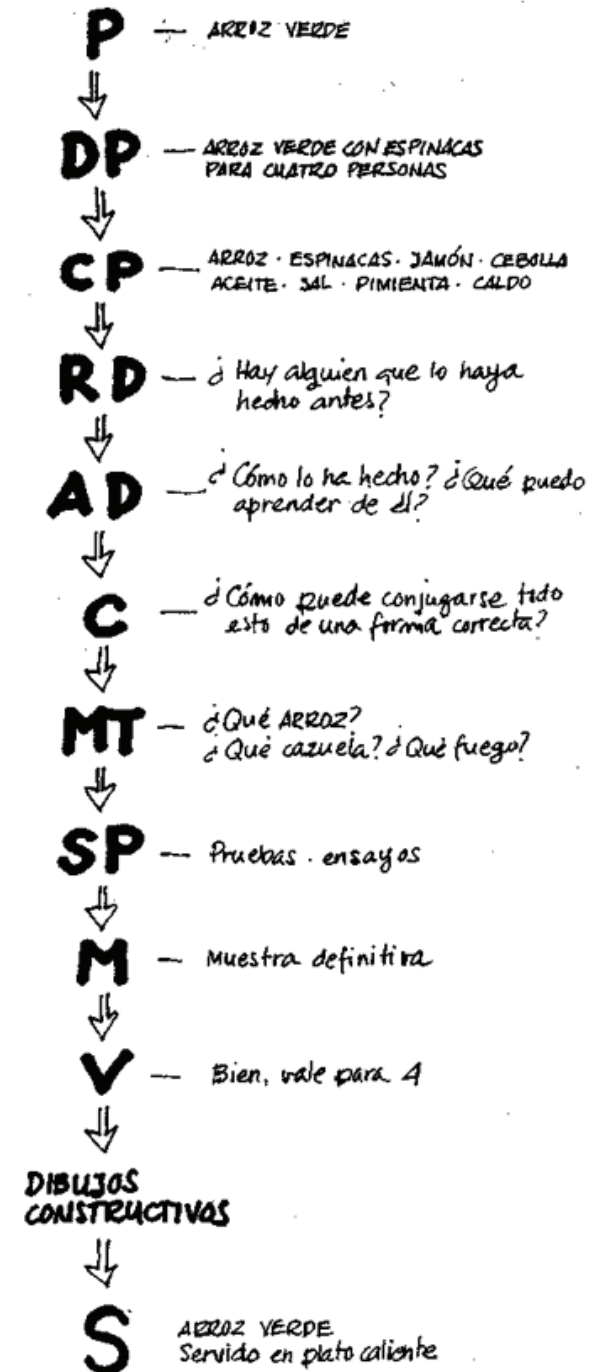 P — ARROZ VERDE
DP — ARROZ VERDE CON ESPINACAS
PARA CUATRO PERSONAS
CP — ARROZ · ESPINACAS · JAMÓN · CEBOLLA
ACEITE · SAL · PIMIENTA · CALDO
RD — ¿Hay alguien que lo haya
hecho antes?
AD — ¿Cómo lo ha hecho? ¿Qué puedo
aprender de él?
C — ¿Cómo puede conjugarse todo
esto de una forma correcta?
MT — ¿Qué ARROZ?
¿Qué cazuela? ¿Qué fuego?
SP — Pruebas · ensayos
M — Muestra definitiva
V — Bien, vale para 4
DIBUJOS
CONSTRUCTIVOS
S ARROZ VERDE
Servido en plato caliente